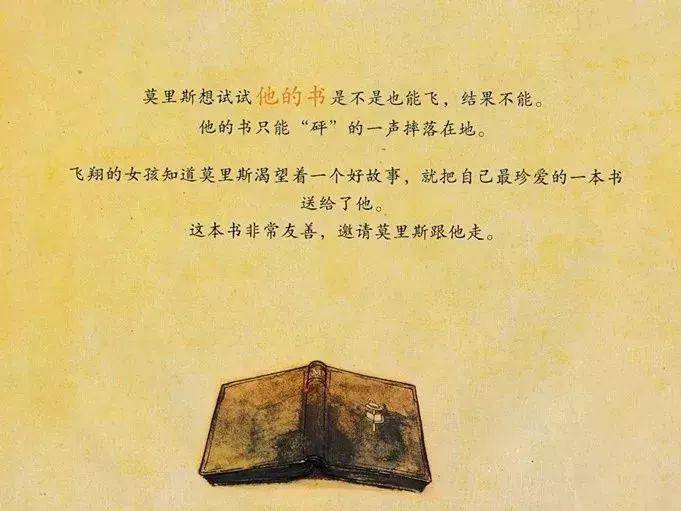 莫里斯想试试他的书是不是也能飞，结果不能。
他的书只能“砰”的一声摔落在地。
飞翔的女孩知道莫里斯渴望着一个好故事，就把自己最珍爱的一本书
送给了他。
这本书非常友善，邀请莫里斯跟他走。